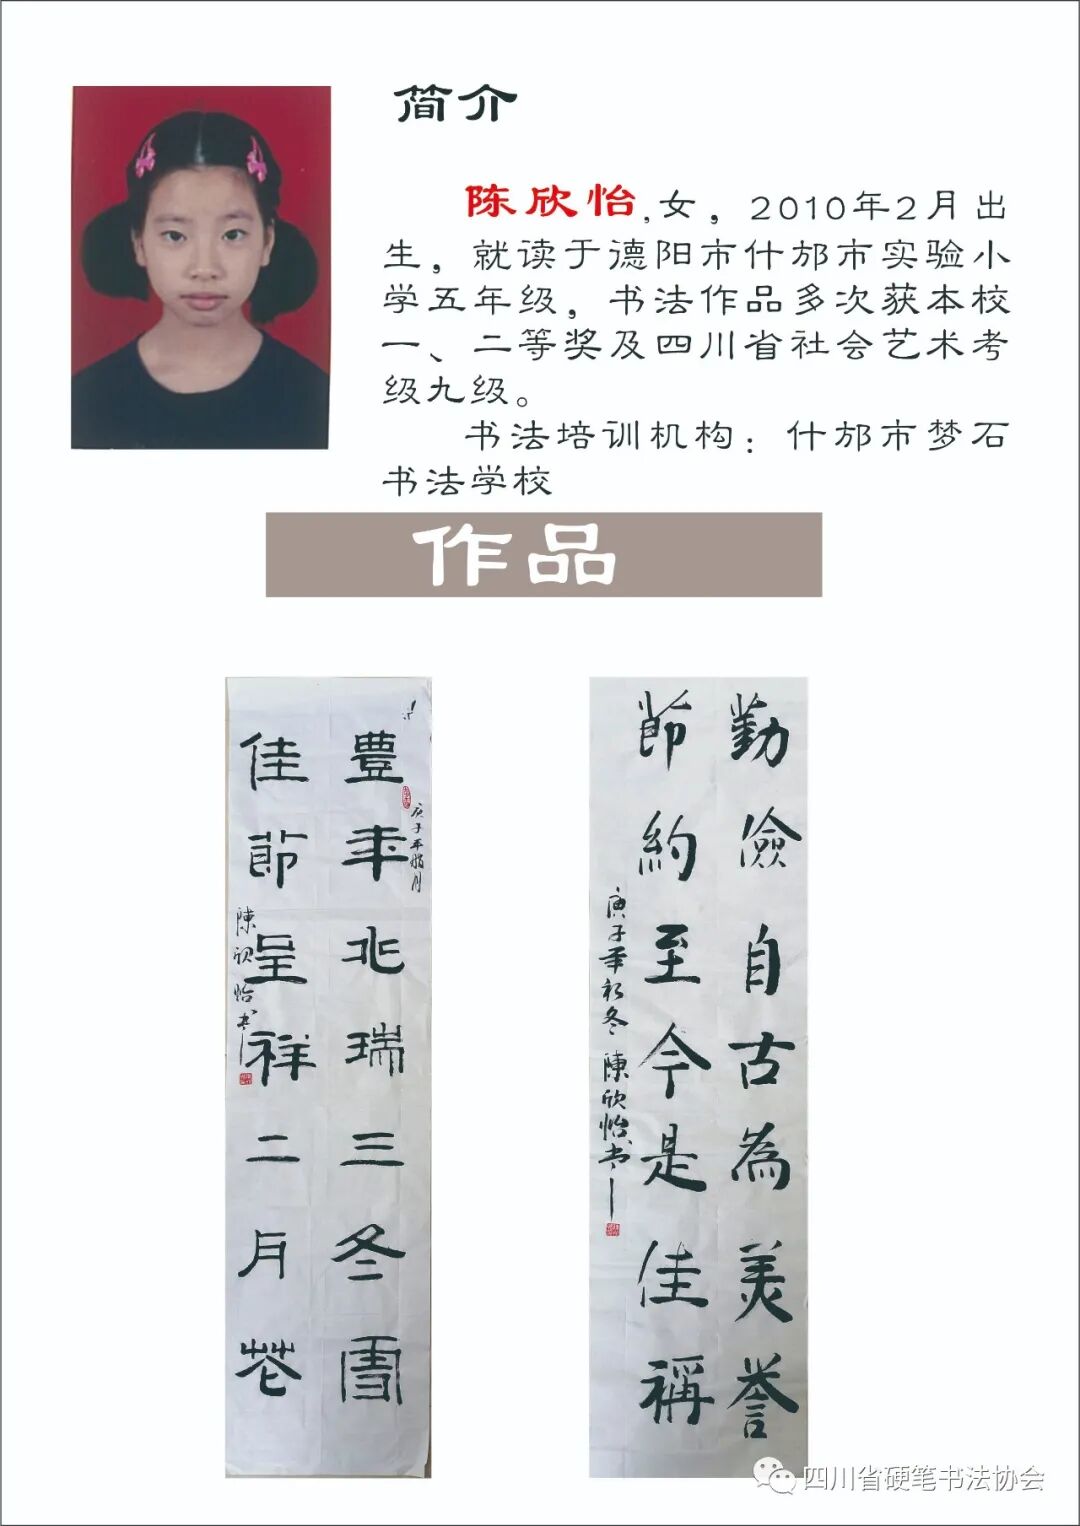 简介
陈欣怡,女，2010年2月出
生，就读于德阳市什邡市实验小
学五年级，书法作品多次获本校
一、二等奖及四川省社会艺术考
级九级。
书法培训机构：什邡市梦石
书法学校
作品
豊年兆瑞三冬雪
庚子年腊月
佳節呈祥二月花
陳欣怡书
勤儉自古為美誉
節約至今是佳稱
庚子年初冬 陳欣怡书
四川省硬笔书法协会